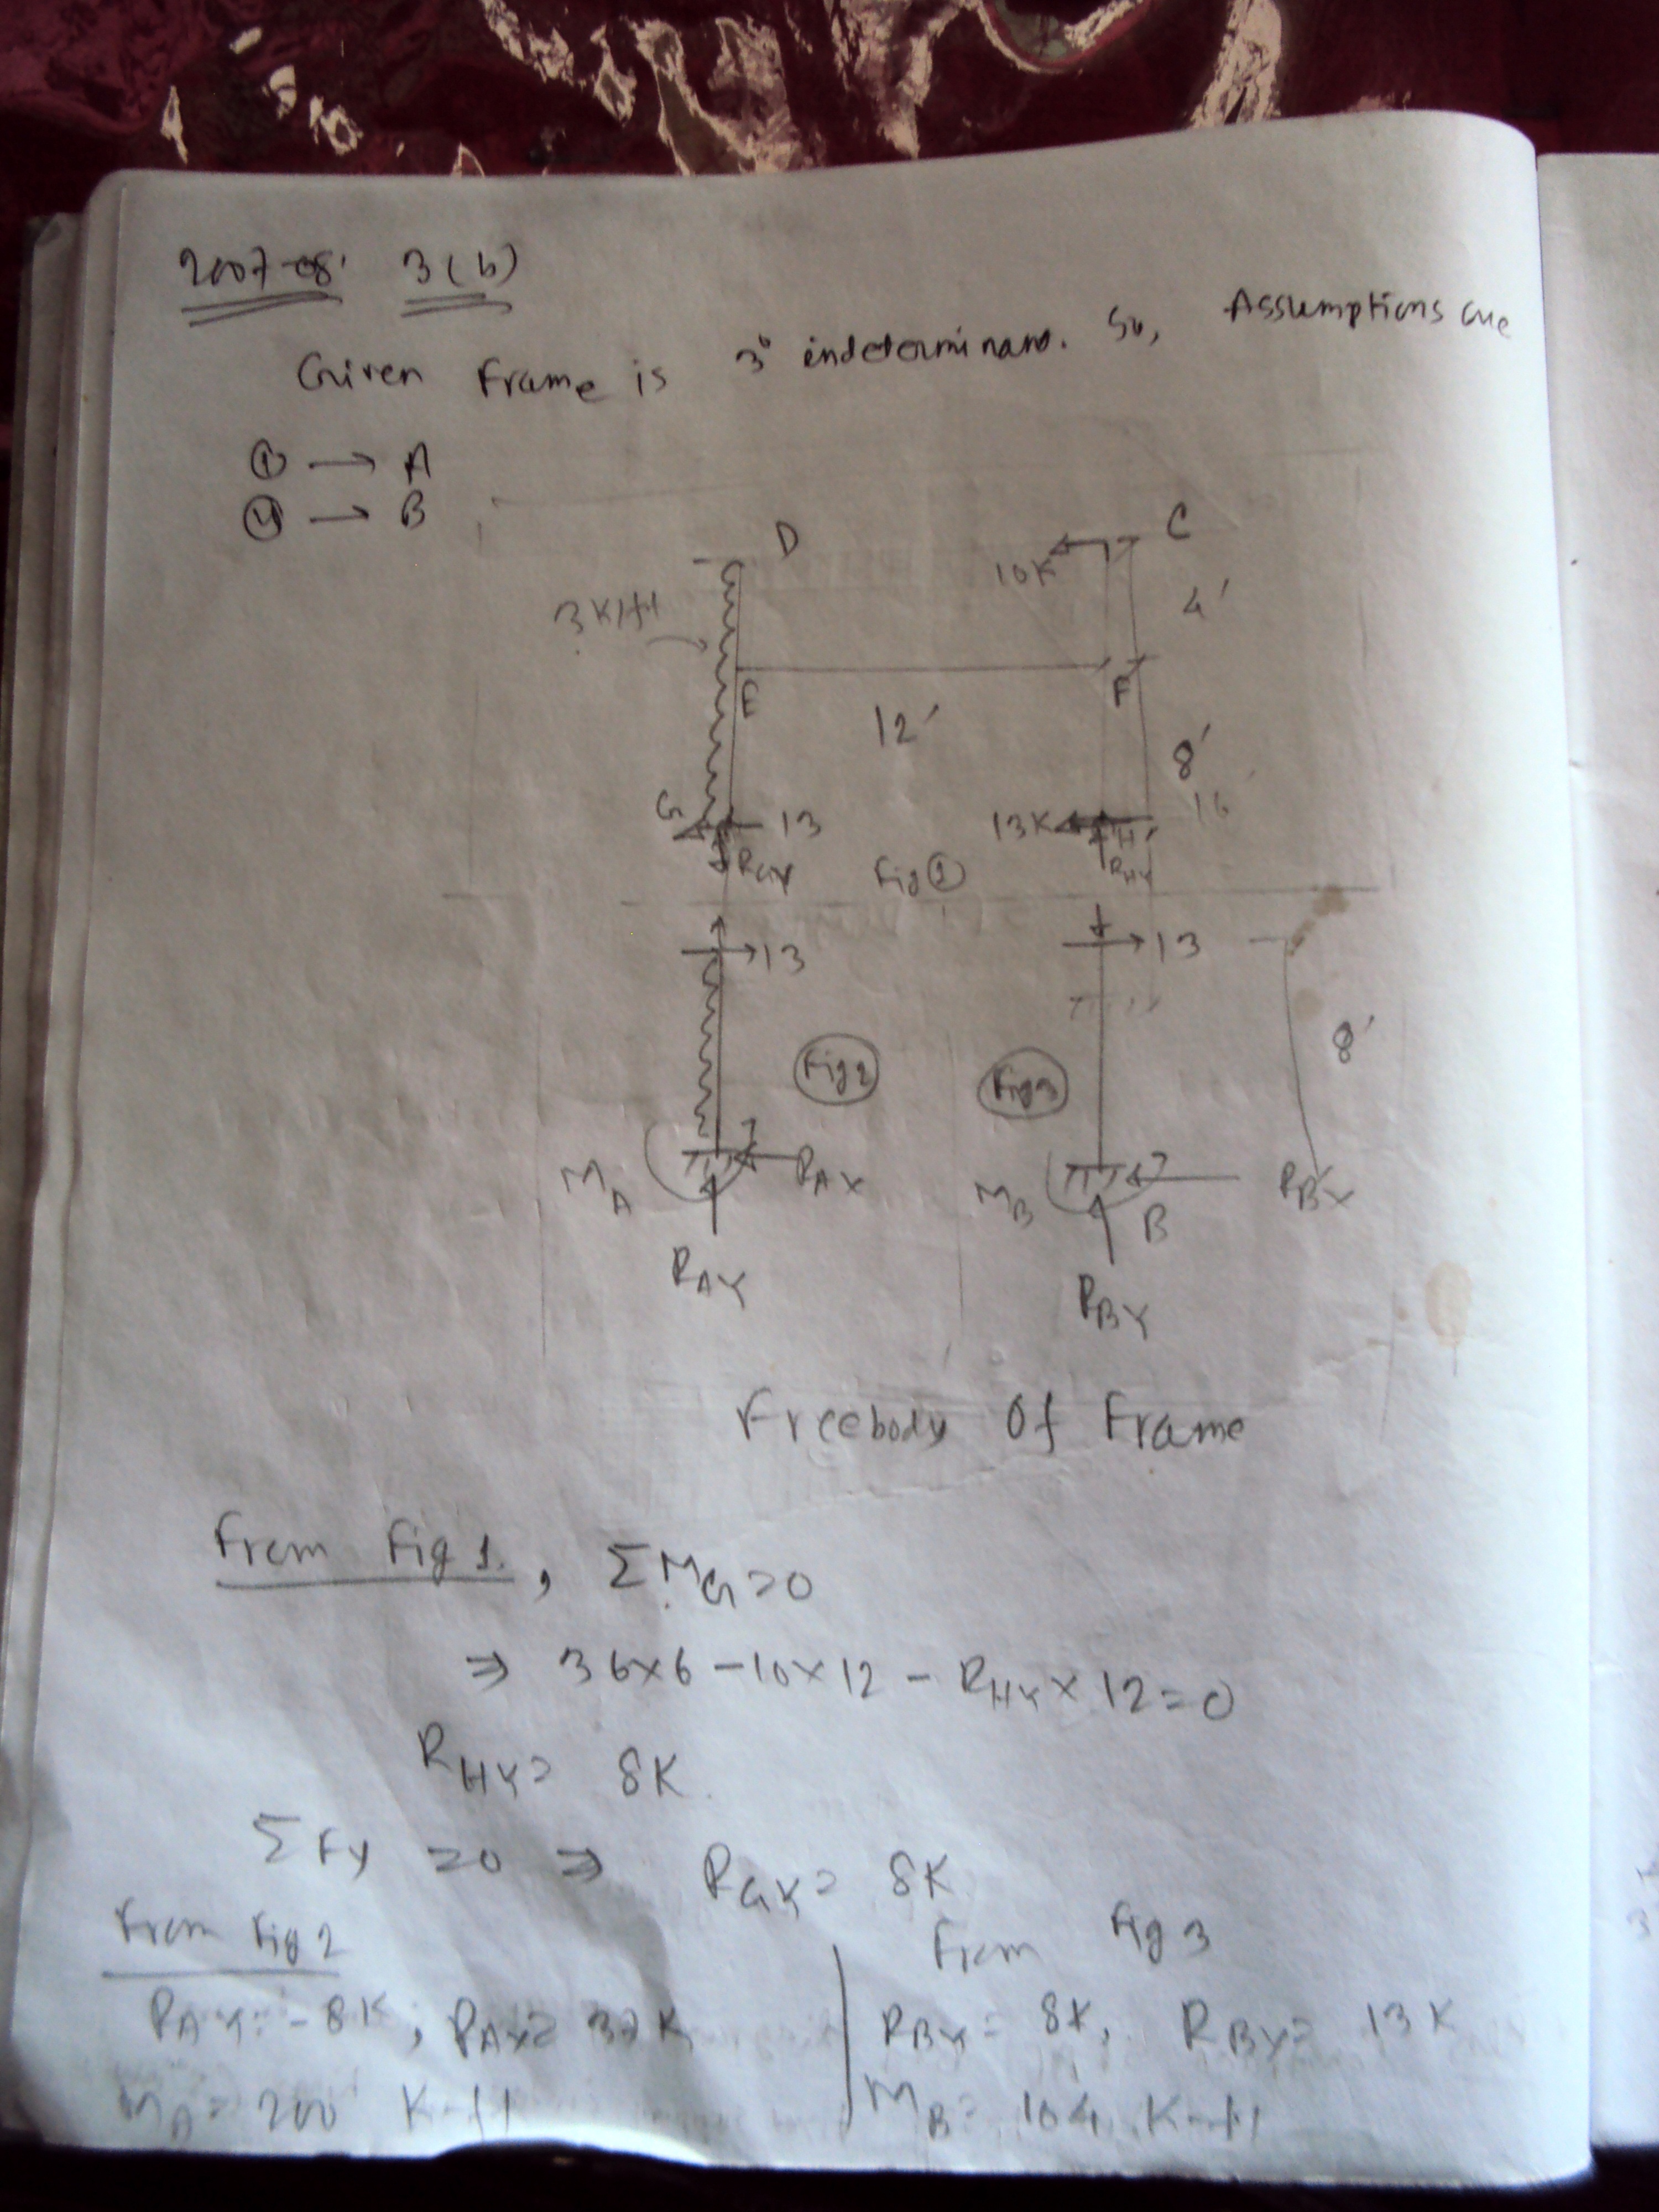 2007-08' 3(b)
Given Frame is 3° indeterminant. So, Assumptions are
① → A
④ → B
D
C
10K
4'
3K/ft
E
F
12'
8'
16'
G
13
13K
H
RGY
Fig ①
RHY
13
13
8'
Fig 2
Fig 3
MA
RAX
MB
B
RBX
RAY
RBY
Freebody Of Frame
From Fig 1. , ΣMG=0
⇒ 36×6 -10×12 - RHY × 12=0
RHY= 8K
ΣFy =0 ⇒ RGY= 8K
From Fig 2
From Fig 3
RAY= -8K, RAX= 37K
RBY= 8K, RBX= 13K
MA= 200 K-ft
MB= 104 K-ft